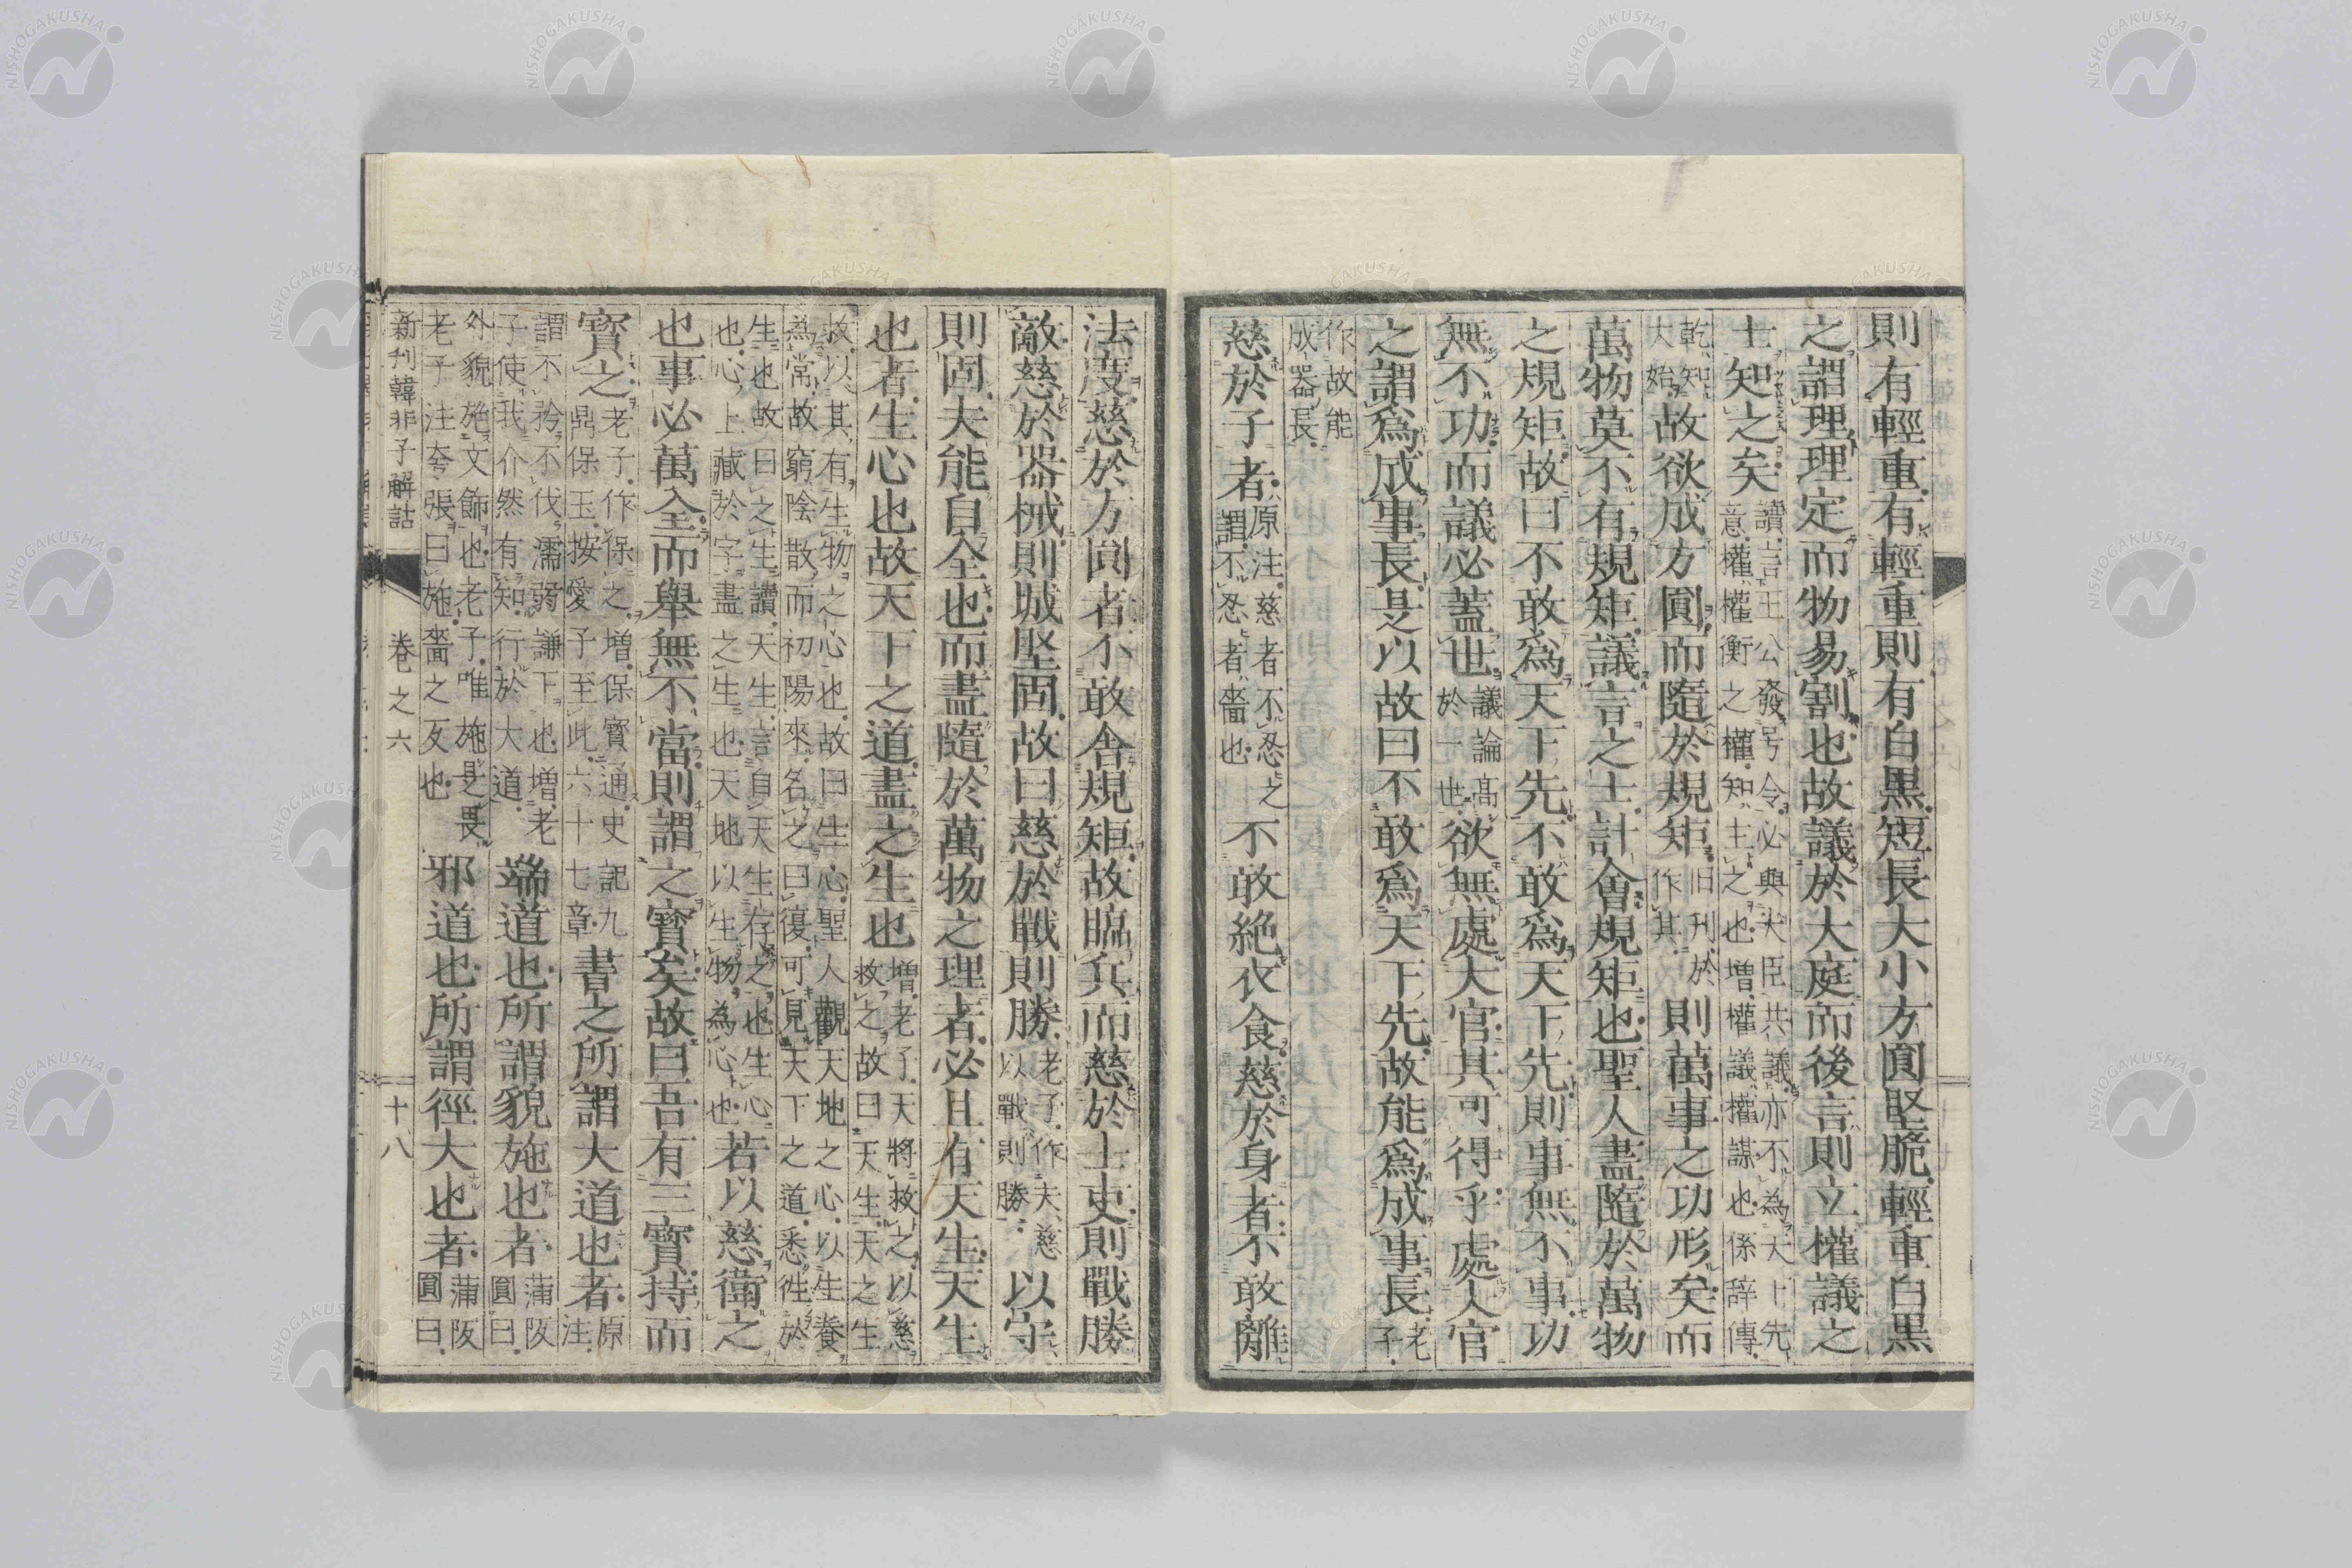 則有輕重有輕重則有白黒短長大小方圓堅脆輕重白黒
之謂理理定而物易割也故議於大庭而後言則立權議之
士知之矣
讀言王公發号令必與大臣共議亦不為天下先
意權權衡之權知主之也増權議權謀也係辞傳
乾知
大始
故欲成方圓而隨於規矩
旧刊於
作其
則萬事之功形矣而
萬物莫不有規矩議言之士計會規矩也聖人盡隨於萬物
之規矩故曰不敢爲天下先不敢爲天下先則事無不事功
無不功而議必蓋世
議論髙
於一世
欲無處大官其可得乎處大官
之謂爲成事長是以故曰不敢爲天下先故能爲成事長
老
子
作故能
成器長
慈於子者
原注慈者不忍之
謂不忍者嗇也
不敢絶衣食慈於身者不敢離
法度慈於方圓者不敢舎規矩故臨兵而慈於士吏則戰勝
敵慈於器械則城堅固故曰慈於戰則勝
老子作夫慈
以戰則勝
以守
則固夫能自全也而盡隨於萬物之理者必且有天生天生
也者生心也故天下之道盡之生也
増老子天將救之以慈
救之故曰天生天之生
故以其有生物之心也故曰生心聖人觀天地之心以生養
為常故窮陰散而初陽來名之曰復可見天下之道悉徃於
生也故曰之生讀天生言自天生存之也生心
也心上藏於字盡之生也天地以生物為心也
若以慈衛之
也事必萬全而舉無不當則謂之寳矣故曰吾有三寳持而
寳之
老子作保之増保寳通史記九
鼎保玉按愛子至此六十七章
書之所謂大道也者
原
注
謂不矜不伐濡弱謙下也増老
子使我介然有知行於大道
端道也所謂貌施也者
蒲阪
圓曰
外貌施文飾也老子唯施是畏
老子注夸張曰施嗇之反也
邪道也所謂徑大也者
蒲阪
圓曰
新刊韓非子解詁
卷之六
十八